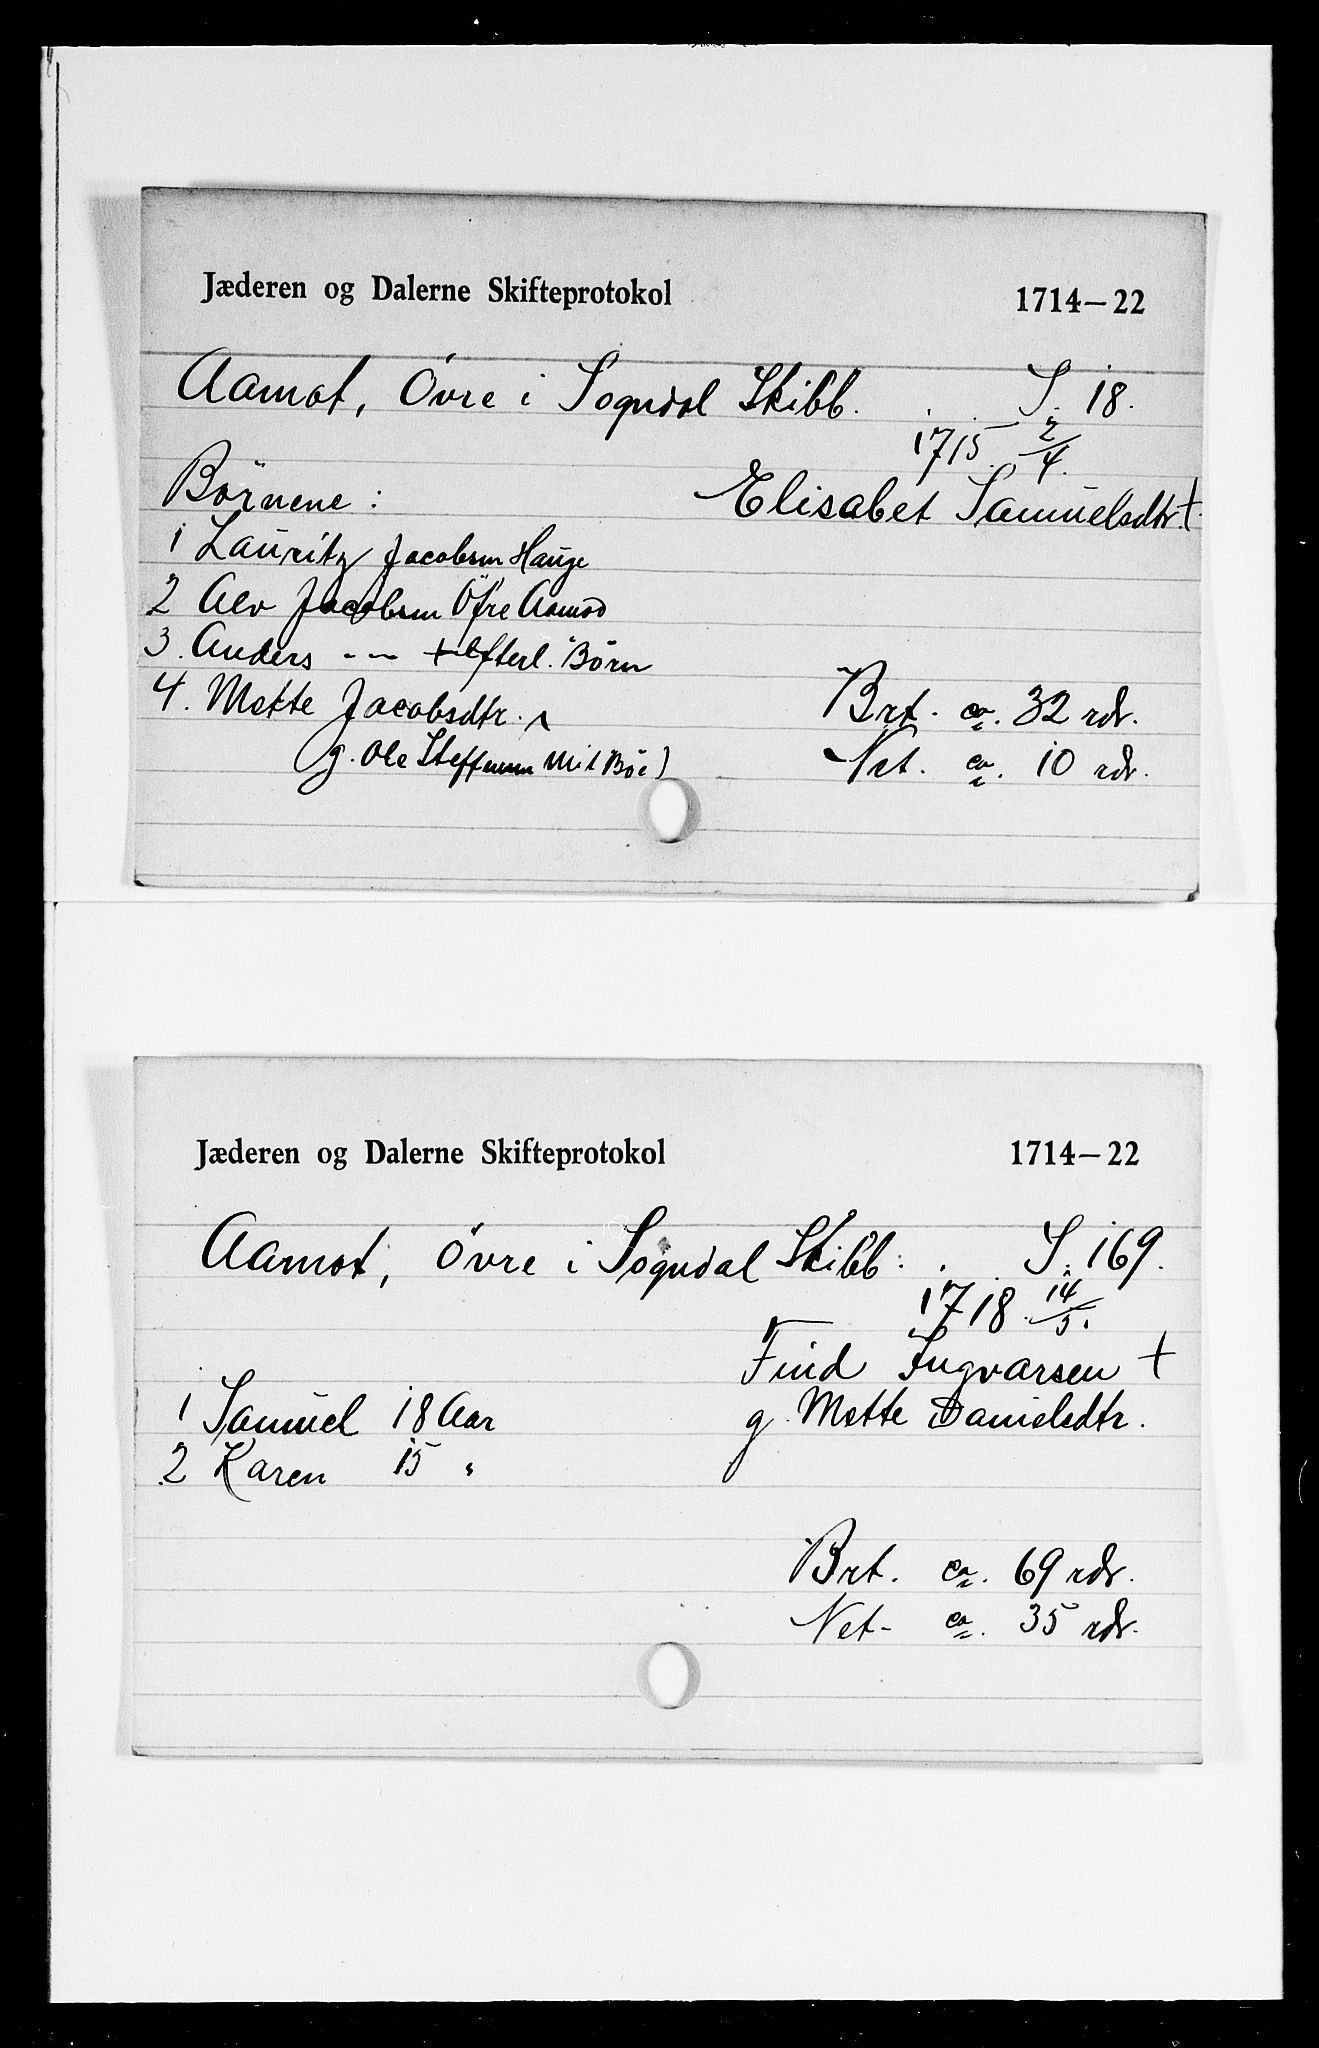 Jæderen og Dalerne Skifteprotokol 1714—22
Aamot, Övre i Sogndal Skibb. . . S. 18.
1715 2/4.
Börnene: Elisabet Samuelsdtr. †
1 Lauritz Jacobsen Hauge
2 Alv Jacobsen Öfre Aamod
3. Anders - - - † Efterl. Börn
4. Mette Jacobsdtr. Brt. ca. 32 rdr.
g. Ole Steffensen Mit Böe) Net. ca. 10 rdr.
Jæderen og Dalerne Skifteprotokol 1714—22
Aamot, övre i Sogndal Skibb: . . S. 169.
1718 14/5.
Find Ingvarsen †
1 Samuel 18 Aar g. Mette Danielsdtr.
2 Karen 15 "
Brt. ca. 69 rdr.
Net- ca. 35 rdr.